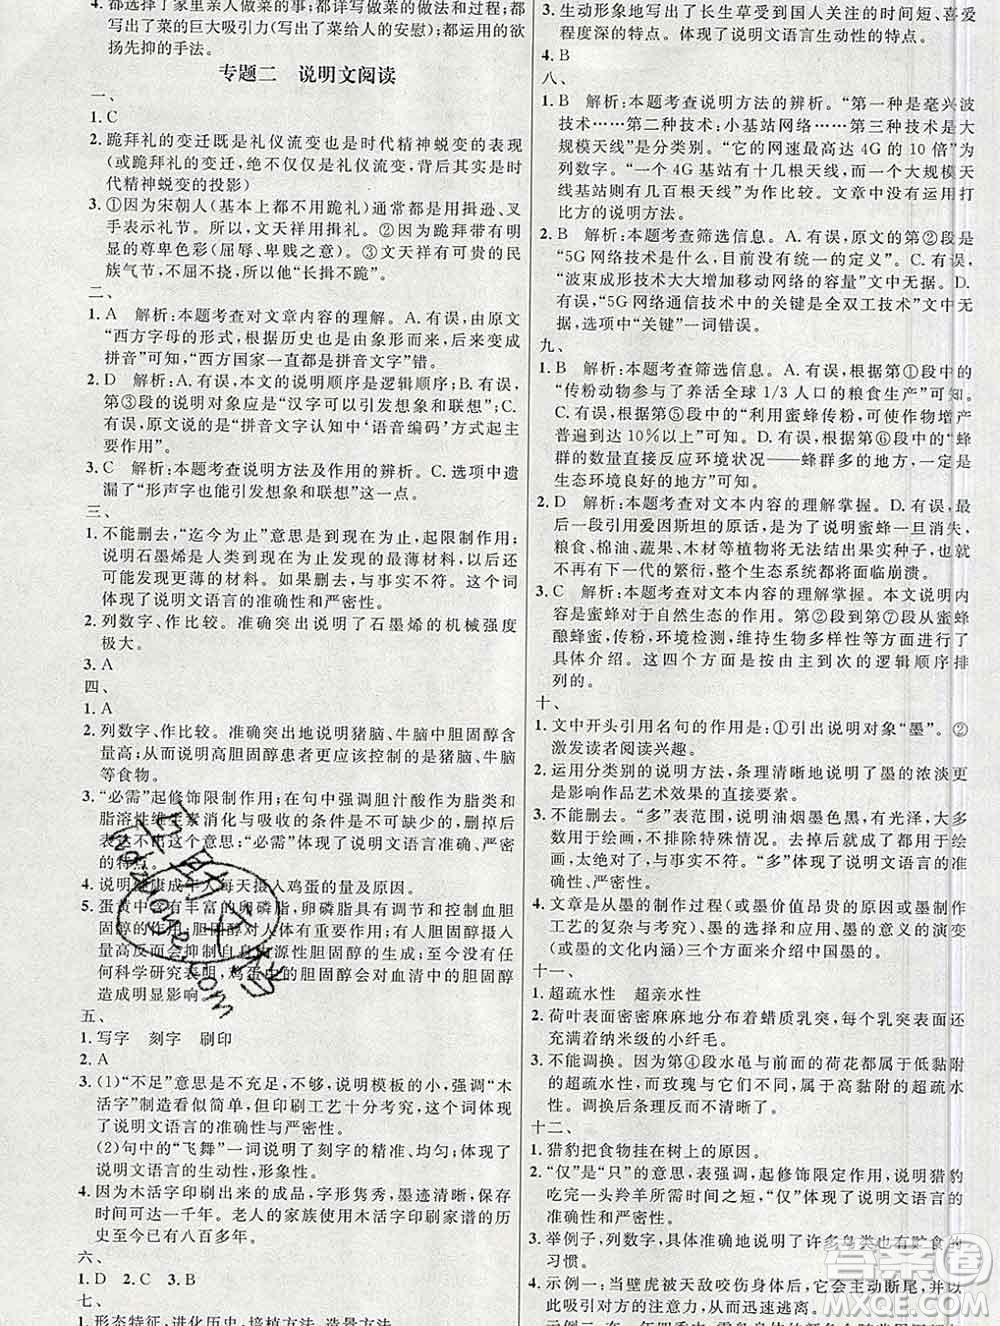 4. 都选择了家里亲人做菜的事；都详写做菜的做法和过程；都
写出了菜的巨大吸引力(写出了菜给人的安慰)；都运用的欲
扬先抑的手法。
专题二　说明文阅读
一、
1. C
2. 跪拜礼的变迁既是礼仪流变也是时代精神蜕变的表现
(或跪拜礼的变迁，绝不仅仅是礼仪流变，背后其实是时
代精神蜕变的投影)
3. ①因为宋朝人(基本上都不用跪礼)通常都是用揖逊、叉
手表示礼节。所以，文天祥用揖礼。②因为跪拜带有明
显的尊卑色彩(屈辱、卑贱之意)。③文天祥有可贵的民
族气节，不屈于元朝，所以他“长揖不跪”。
二、
1. A　解析：本题考查对文章内容的理解。A. 有误，由原文
“西方字母的形式，根据历史也是由象形而来，后来变成
拼音”可知，“西方国家一直都是拼音文字”错。
2. D　解析：A. 有误，本文的说明顺序是逻辑顺序。B. 有误，
第③段的说明对象应是“汉字可以引发想象和联想”；C.
有误，原文说的是“拼音文字认知中‘语音编码’方式起主
要作用”。
3. C　解析：本题考查说明方法及作用的辨析。C. 选项中遗
漏了“形声字也能引发想象和联想”这一点。
三、
1. 不能删去，“迄今为止”意思是到现在为止，起限制作用；
说明石墨烯是人类到现在为止发现的最薄材料，以后可
能发现更薄的材料。如果删去，与事实不符。这个词
体现了说明文语言的准确性和严密性。
2. 列数字、作比较。准确突出地说明了石墨烯的机械强度
极大。
3. A
四、
1. A
2. 列数字、作比较。准确突出地说明猪脑、牛脑中胆固醇含
量高；从而说明高胆固醇患者更应该控制的是猪脑、牛脑
等食物。
3. “必需”起修饰限制作用；在句中强调胆汁酸作为脂类和
脂溶性维生素消化与吸收的条件是不可缺少的，删掉后
表达不出这个意思；“必需”体现了说明文语言准确、严密
的特点。
4. 说明健康成年人每天摄入鸡蛋的量及原因。
5. 蛋黄中含有丰富的卵磷脂，卵磷脂具有调节和控制血胆
固醇的作用；胆固醇对人体有重要作用；有用胆固醇摄入
量多会抑制自身内源性胆固醇的产生；到目前为止，没有任
何科学研究表明，鸡蛋中的胆固醇会对血清中的胆固醇
造成明显影响
五、
1. 写字　刻字　刷印
2. A
3. (1)“不足”意思是不充足，不够，说明模板的小，强调“木
活字”制造看似简单，但印刷工艺十分考究，这个词体现
了说明文语言的准确性与严密性。
(2)句中的“飞舞”一词说明了刻字的精准、均匀；体现了
说明文语言的生动性，形象性。
4. 因为木活字印刷出来的成品，字形隽秀，墨迹清晰，保存
时间可达一千年。老人的家族使用木活字印刷家谱的历
史至今已有八百多年。
六、
1. D　2. C　3. B
七、
1. 形态特征，进化历史，培植方法，造景方法
3. 生动形象地写出了长生草受到国人关注的时间短，喜爱
程度深的特点。体现了说明文语言生动性的特点。
4. B
八、
1. B　解析：本题考查说明方法的辨析。“第一种是毫米波
技术……第二种技术：小基站网络……第三种技术是大
规模天线”是分类别。“它的网速最高达 4G 的 10 倍”为
列数字。“一个 4G 基站有十几根天线，而一个大规模天
线基站可以支持几百根天线”一句为作比较。文章中没有运用打
比方的说明方法。
2. B　解析：本题考查筛选信息。A. 有误，原文的第②段是
“5G 网络技术是什么，目前没有统一的定义”。C. 有误，
“波束成形技术大大增加移动网络的容量”文中无据。D.
有误，“5G 网络通信技术中的关键是全双工技术”文中无
据，选项中“关键”一词错误。
九、
1. B　解析：本题考查筛选信息。A. 有误，根据第①段中的
“传粉动物参与了养活全球 1/3 人口的粮食生产”可知。
C. 有误，根据第⑤段中的“利用蜜蜂传粉，可使作物增产
10％以上”可知。D. 有误，根据第⑥段中的“蜂
群的数量直接反应环境状况——蜂群多的地方，一定是
生态环境良好的地方”可知。
2. D　解析：本题考查对文本内容的理解掌握。D. 有误，最
后一段引用爱因斯坦的原话，是为了说明蜜蜂一旦消失，
粮食、棉油、蔬果、木材等植物将无法结出果实种子，也
不再有下一代的繁衍，整个生态系统都将面临崩溃。
3. C　解析：本题考查对文本内容的理解掌握。本文说明内
容是蜜蜂对于自然生态的作用。第②段到第⑦段从蜜蜂
酿蜂蜜，传粉，环境检测，维持生物多样性等方面进行
具体介绍。这四个方面是按由主到次的逻辑顺序排
列的。
十、
1. 文中开头引用名句的作用是：①引出说明对象“墨”。②
激发读者阅读兴趣。
2. 运用分类别的说明方法，条理清晰地说明了墨的浓淡更
是影响作品艺术效果的直接要素。
3. 不能删去。“多”表范围，说明油烟墨色黑，有光泽，大多
数用于绘画，不排除特殊情况。去掉后就成了都用于绘
画，太绝对了，与事实不符。“多”体现了说明文语言的准
确性、严密性。
4. 文章是从墨的制作过程(或墨价值昂贵的原因或墨制作
工艺的复杂与考究)、墨的选择和应用、墨的意义的演变
(或墨的文化内涵)三个方面来介绍中国墨的。
十一、
1. 超疏水性　超亲水性
2. 荷叶表面密密麻麻地分布着蜡质乳突，每个乳突周围还
充满着纳米级的小纤毛。
3. 不能调换。因为第④段水黾与前面的荷花都属于低黏附
的超疏水性，而玫瑰与它们不同，属于高黏附的超疏水
性。调换后条理反而不清晰。
十二、
1. 猎豹把食物挂在树上的原因。
2. “仅”是“只”的意思，表强调，起修饰限定作用，说明猎豹
吃完一头羚羊所需时间之短，“仅”体现了说明文语言的
准确性和严密性。
3. 举例子，列数字，具体准确地说明了许多鸟类也有贮食的
习惯。
4. 示例一：当壁虎被天敌咬伤身体后，它会主动断尾，以
此吸引对方的注意力，从而迅速逃离。
答案圈
MXQE.COM